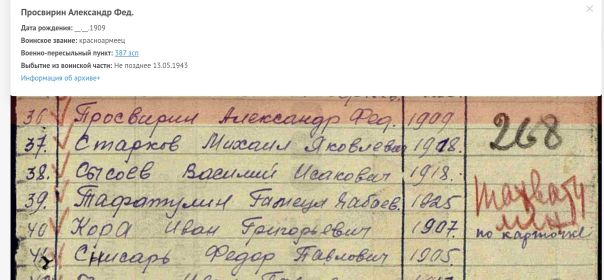 Просвирин Александр Фед.
Дата рождения: __.__.1909
Воинское звание: красноармеец
Военно-пересыльный пункт: 387 зсп
Выбытие из воинской части: Не позднее 13.05.1943
Информация об архиве+
36. Просвирин Александр Фед. 1909
37. Старков Михаил Яковлевич 1918. 268
38. Сысоев Василий Исакович 1918.
39. 1925
40 Кора Иван Григорьевич 1907. по карточке
41 Снисарь Федор Павлович 1905.